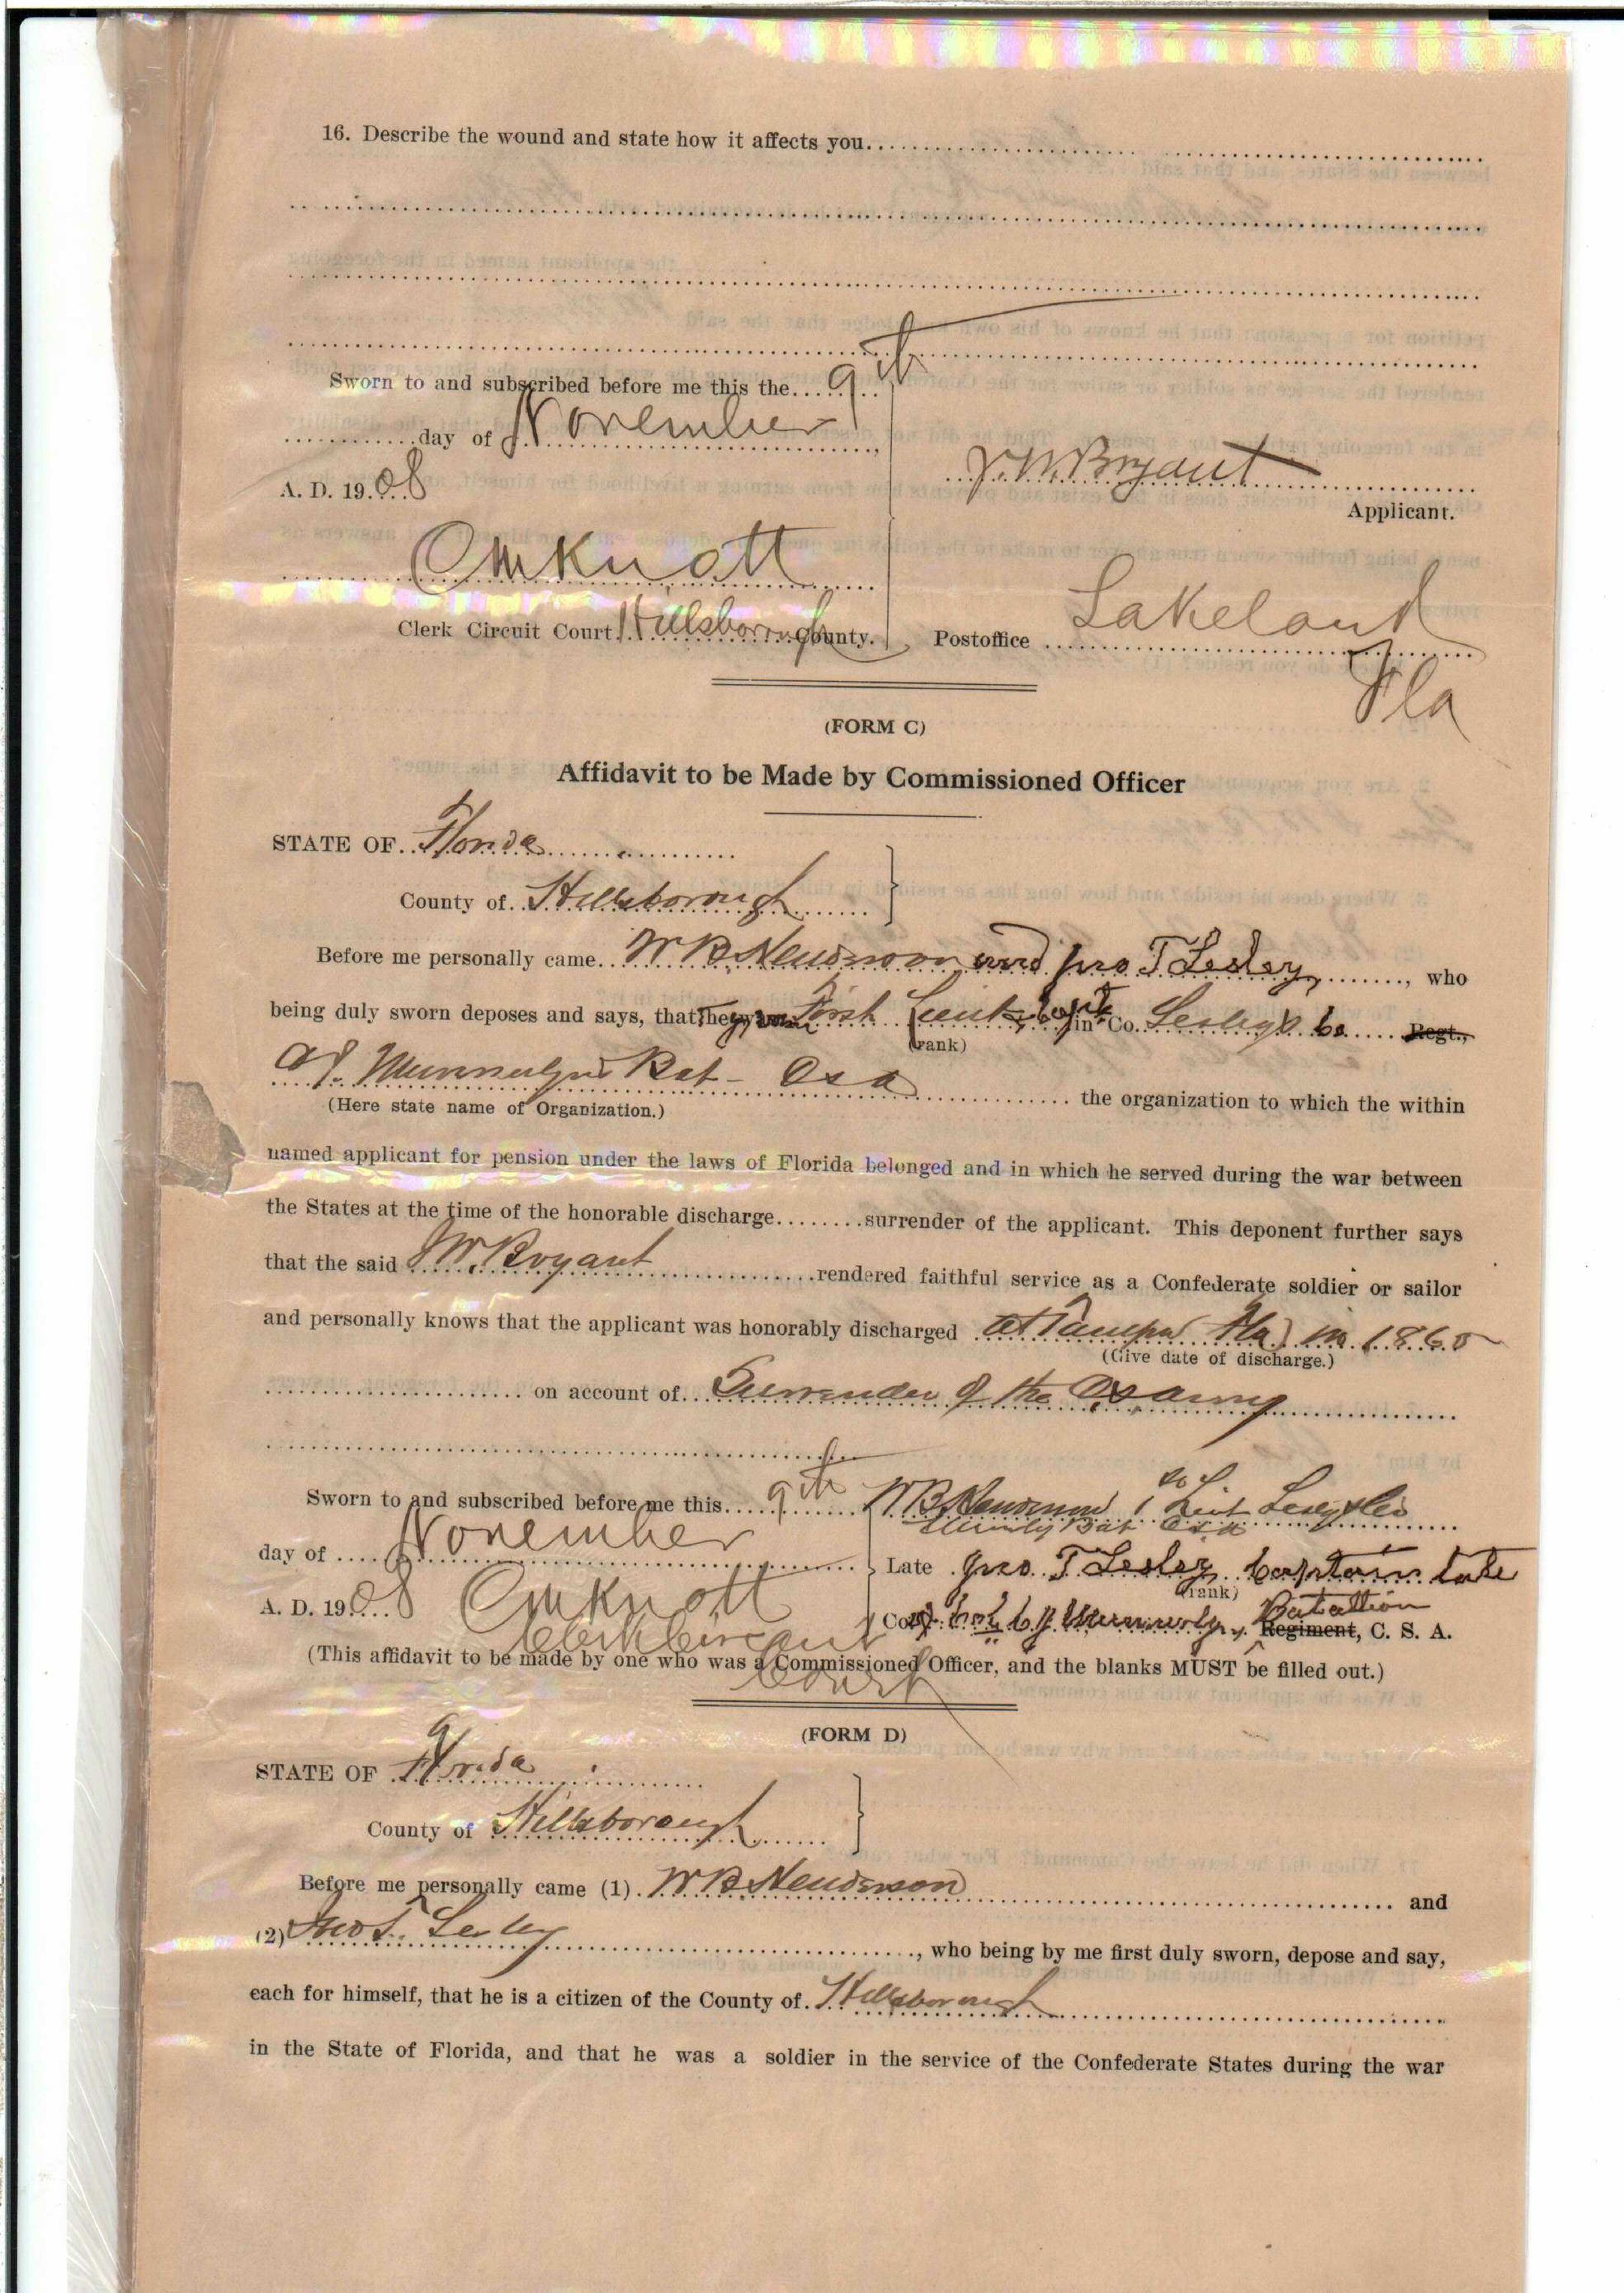 16. Describe the wound and state how it affects you
Sworn to and subscribed before me this the 9th
day of November
A. D. 1908
J. W. Bryant
Applicant.
C M Knott
Clerk Circuit Court Hillsborough County.
Postoffice Lakeland
Fla
(FORM C)
Affidavit to be Made by Commissioned Officer
STATE OF Florida
County of Hillsborough
Before me personally came W B Henderson and Jno T Lesley, who
being duly sworn deposes and says, that They were First Lieut & Capt in Co. Lesley's Co Regt.,
(rank)
of Munnerlyn's Bat - CSA the organization to which the within
(Here state name of Organization.)
named applicant for pension under the laws of Florida belonged and in which he served during the war between
the States at the time of the honorable discharge surrender of the applicant. This deponent further says
that the said J W. Bryant rendered faithful service as a Confederate soldier or sailor
and personally knows that the applicant was honorably discharged at Tampa Fla in 1865
(Give date of discharge.)
on account of Surrender of the CS army
Sworn to and subscribed before me this 9th
W B Henderson 1st Lieut Lesleys Co
Bat CSA
day of November
Late Jno. T Lesley Captain late
(rank)
A. D. 1908 C M Knott
Co of Col C J Munnerlyn Batallion Regiment, C. S. A.
Clerk Circuit
Court
(This affidavit to be made by one who was a Commissioned Officer, and the blanks MUST be filled out.)
(FORM D)
STATE OF Florida
County of Hillsborough
Before me personally came (1) W B Henderson and
(2) Jno T. Lesley, who being by me first duly sworn, depose and say,
each for himself, that he is a citizen of the County of Hillsborough
in the State of Florida, and that he was a soldier in the service of the Confederate States during the war